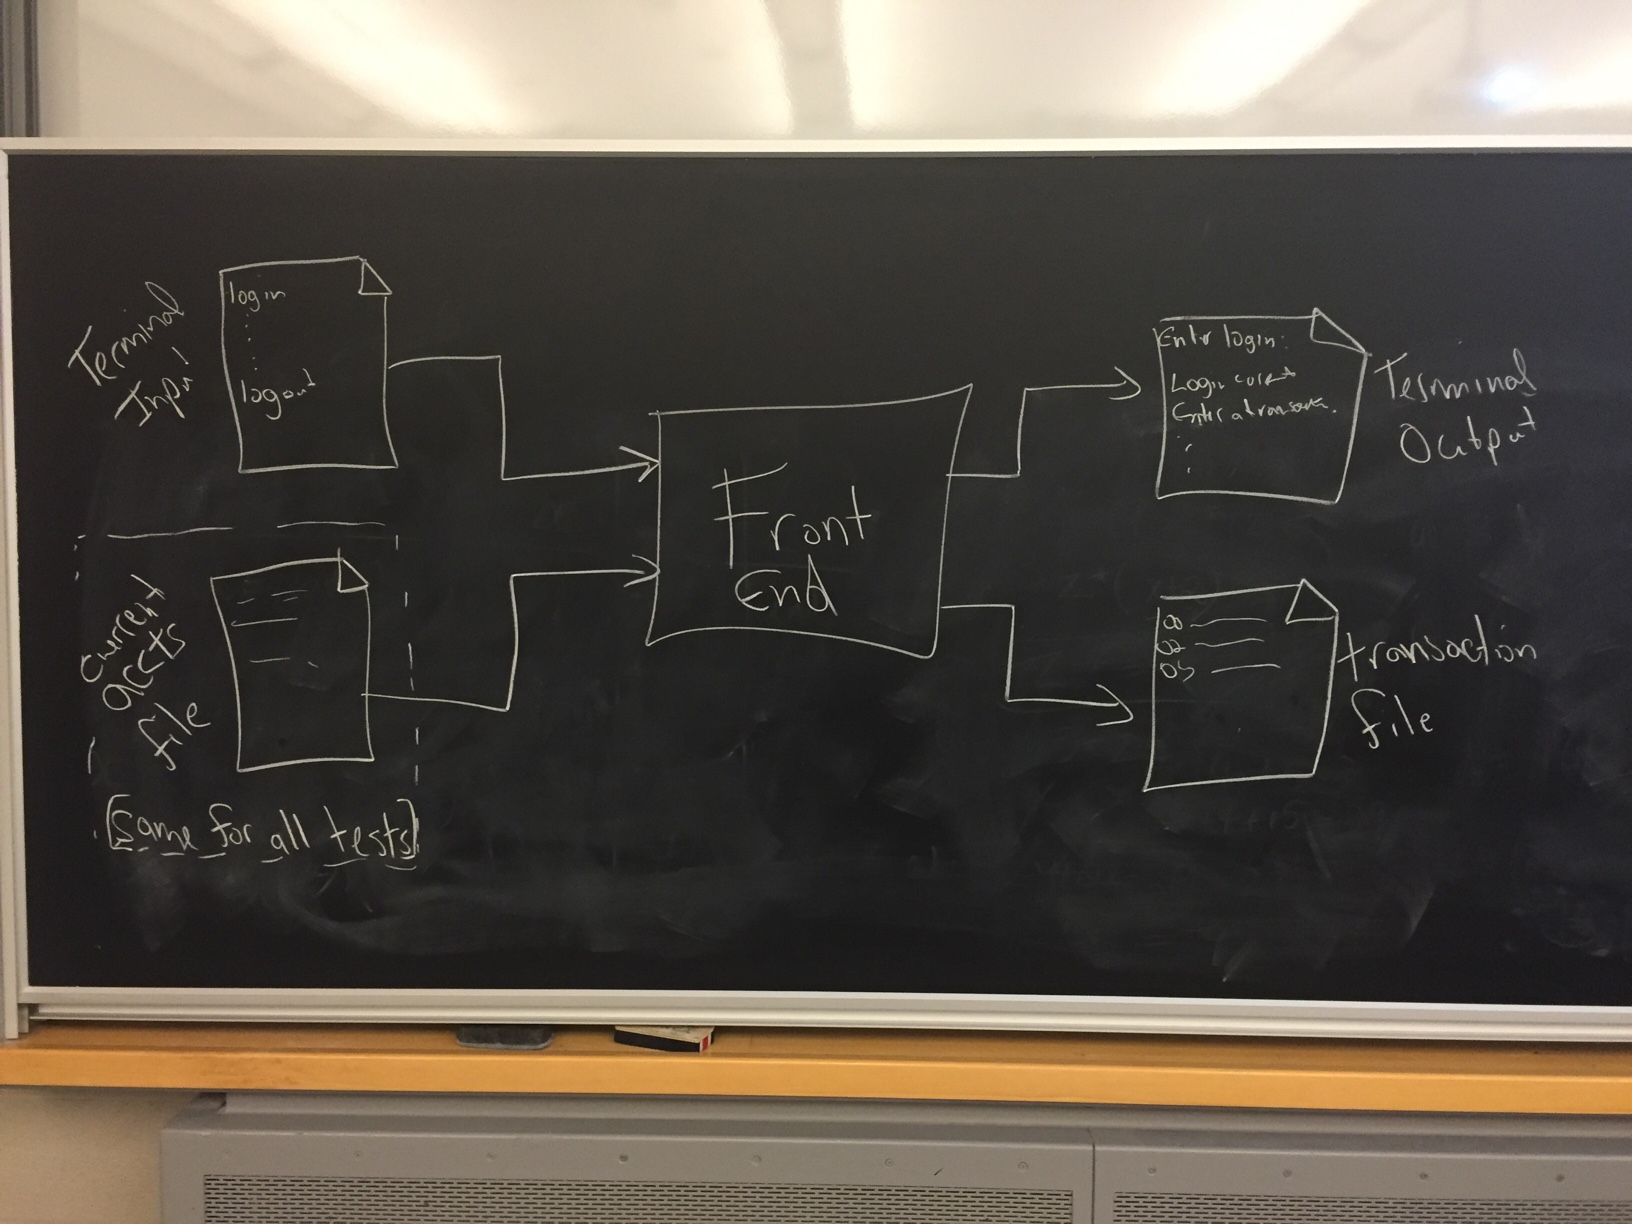 Terminal
Inpu
login
logout
current
accts
file
[same for all tests]
Front
End
Enter login:
Login
Enter a
Terminal
Output
00
02
03
transaction
file